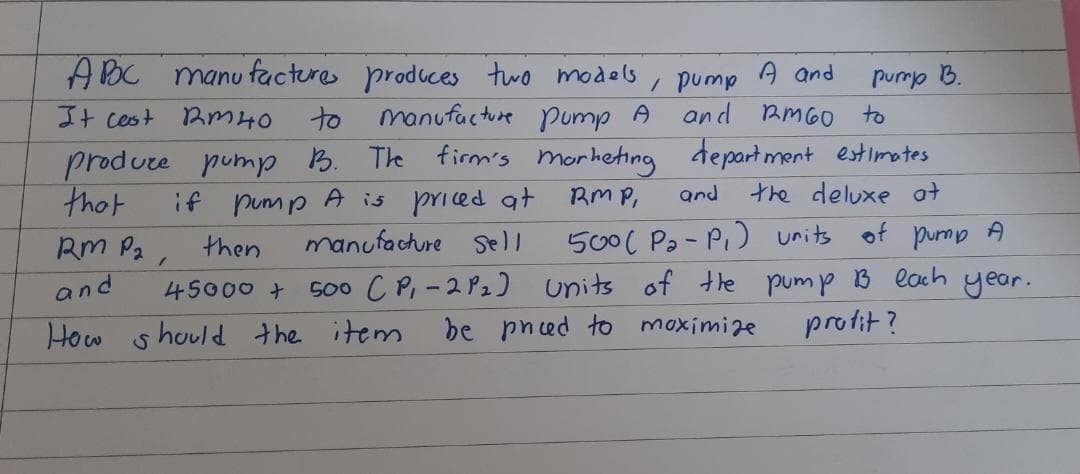 ABC manufactures produces two models, pump A and pump B.
It cost RM40 to manufacture pump A and RM60 to
produce pump B. The firm's marketing department estimates
that if pump A is priced at RM P₁ and the deluxe at
RM P₂, then manufacture sell 500(P₂-P₁) units of pump A
and 45000 + 500 (P₁-2P₂) units of the pump B each year.
How should the item be priced to maximize profit?